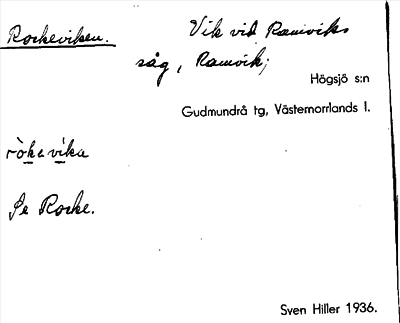 Rockeviken.
Vik vid Ramviks
såg, Ramvik;
Högsjö s:n
Gudmundrå tg, Västernorrlands l.
ròkevika
Se Rocke.
Sven Hiller 1936.